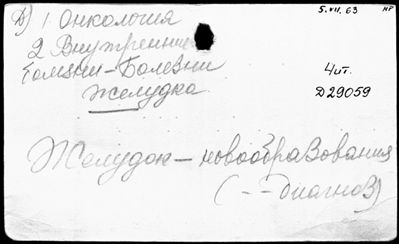 5.VII.63 НГ
В) 1. Онкология
2 Внутренние
болезни-Болезни
Желудка
4ит.
Д29059
Желудок - новообразования
(-- Диагноз)